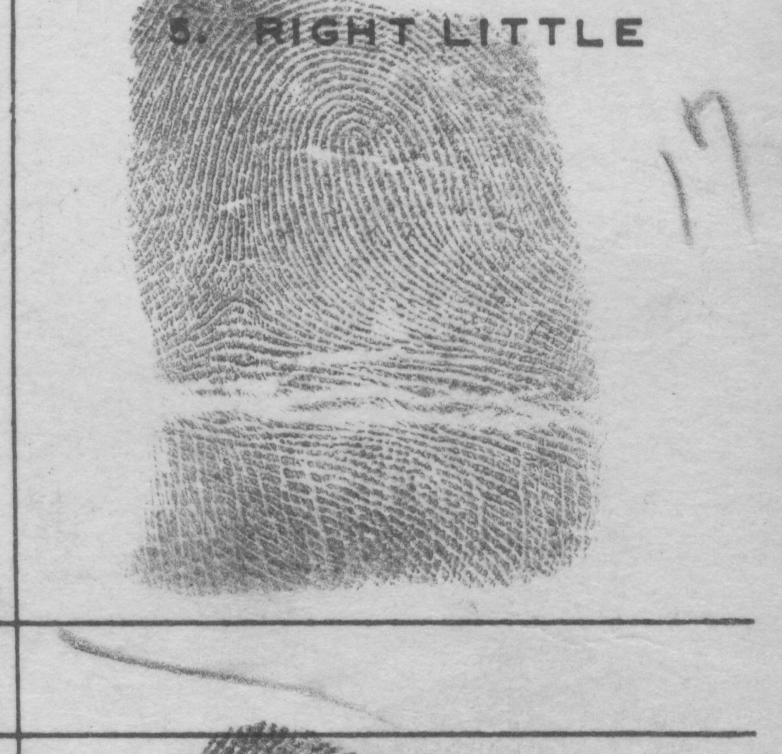 5. RIGHT LITTLE
17